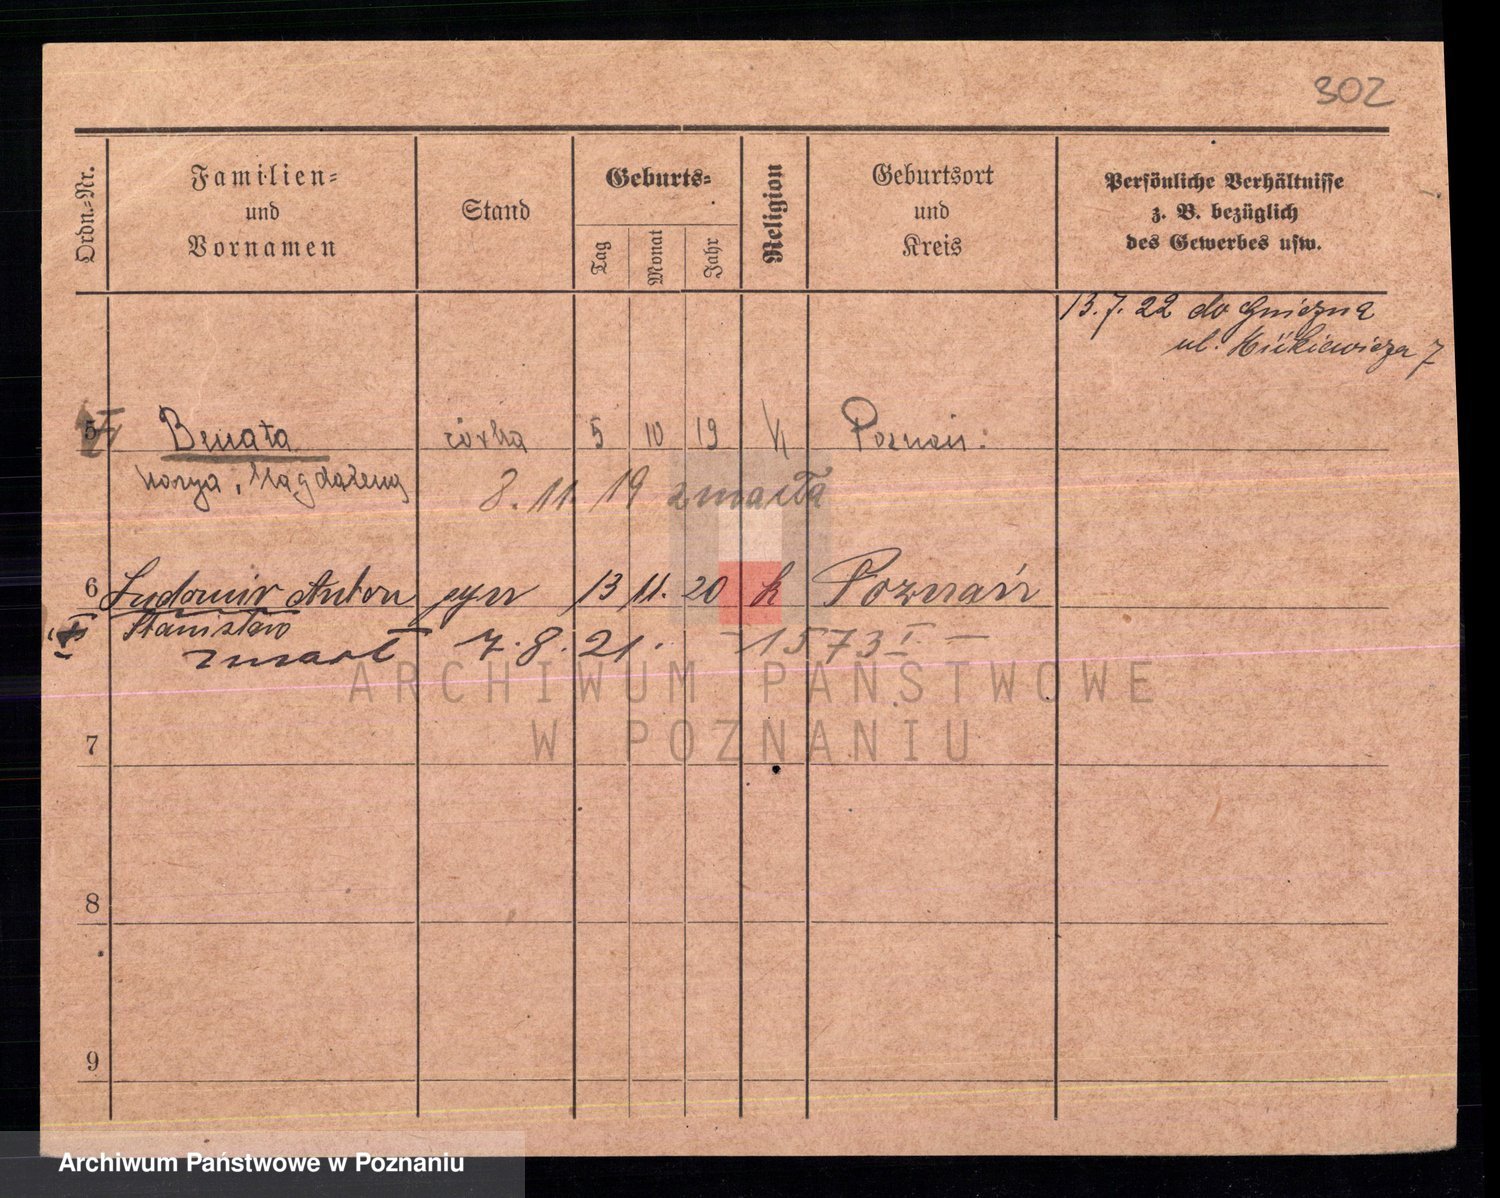 302
Ordn.-Nr.
Familien-
und
Vornamen
Stand
Geburts-
Tag
Monat
Jahr
Religion
Geburtsort
und
Kreis
Persönliche Verhältnisse
z. B. bezüglich
des Gewerbes usw.
13.7.22 do Gniezna
ul. Mickiewicza 7
5 Benata córka 5 10 19 k Poznań.
Marya, Magdalena
8.11.19 zmarła
6 Ludomir Anton syn 13 11. 20 k Poznań
Stanisław
zmarł 7.8.21. - 1573 I. -
7
8
9
ARCHIWUM PAŃSTWOWE
W POZNANIU
Archiwum Państwowe w Poznaniu